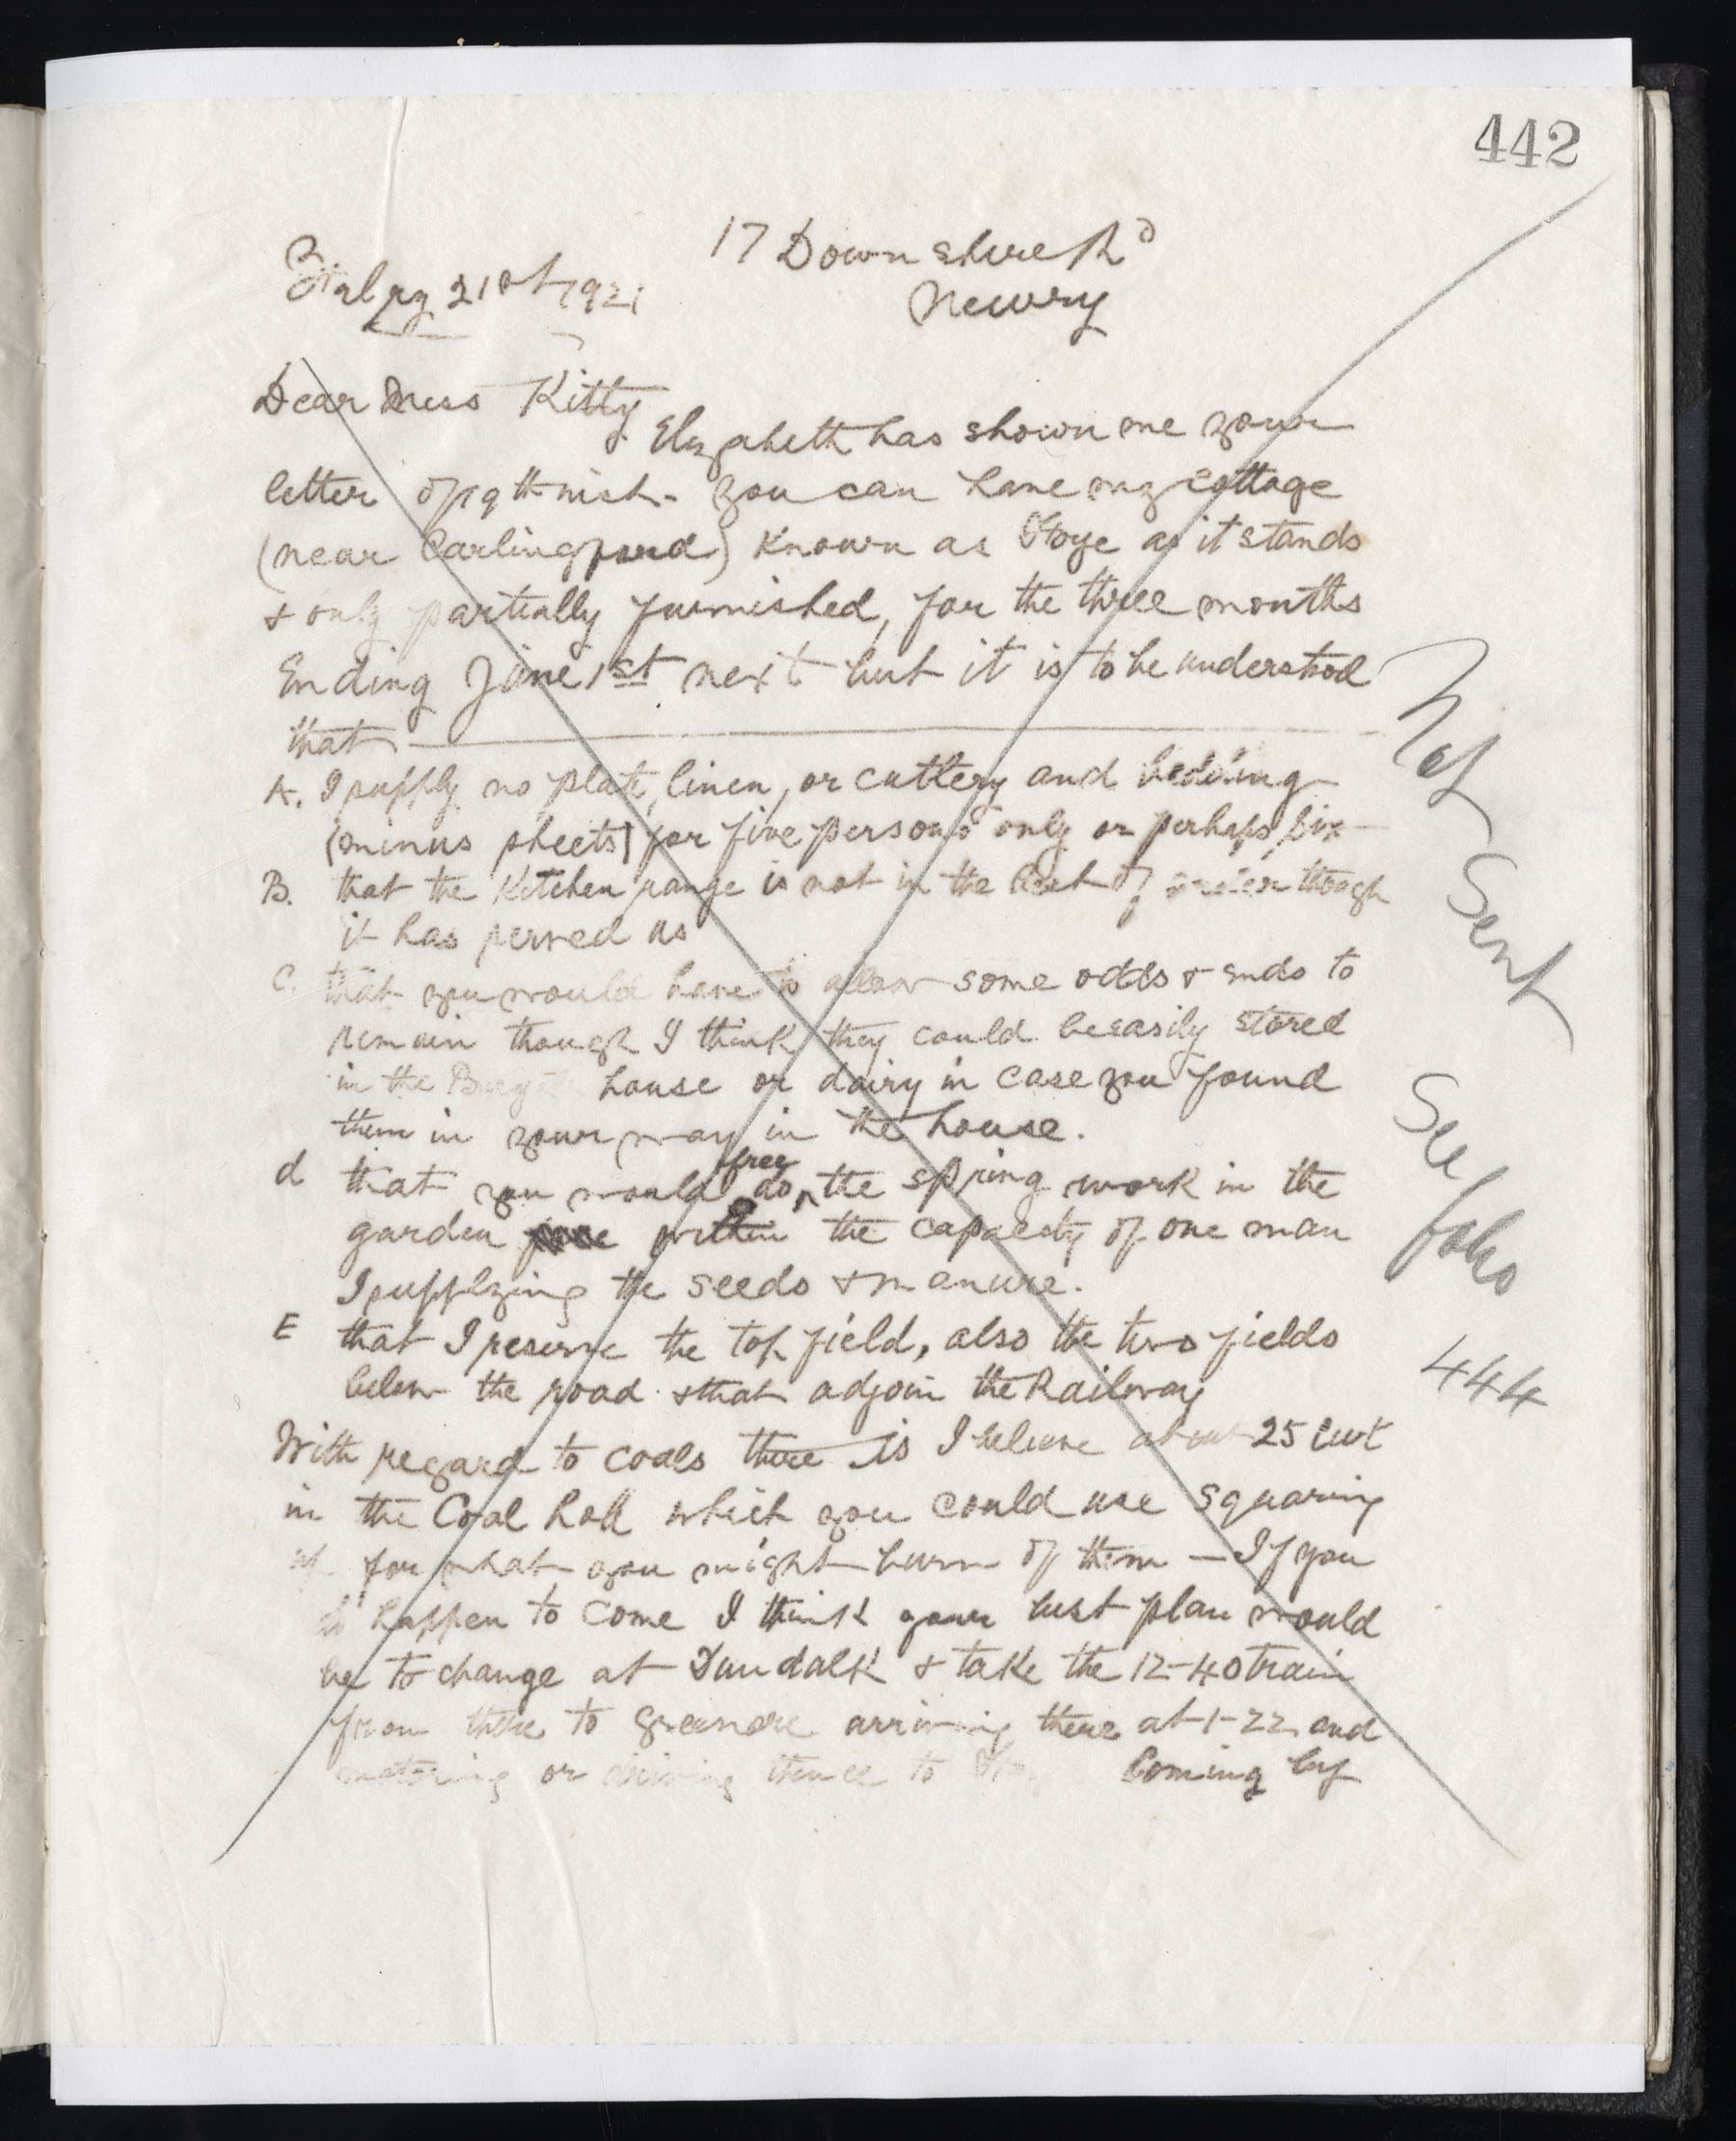 442
17 Downshire Rd
Newry
Febry 21st 1921
Dear Miss Kitty
Elizabeth has shown me your
letter of 19th inst. You can have my cottage
(near Carlingford) known as Ffoye as it stands
& only partially furnished, for the three months
Ending June 1st next but it is to be understood
that
A. I supply no plate, linen, or cutlery and bedding
(minus sheets) for five persons only or perhaps six
B. that the Kitchen range is not in the best of order though
it has served us
C. that you would have to allow some odds & ends to
remain though I think they could be easily stored
in the house or dairy in case you found
them in your way in the house.
d that you would do free the spring work in the
garden within the capacity of one man
I supplying the seeds & manure.
E that I reserve the top field, also the two fields
below the road & that adjoin the Railway
With regard to coals there is I believe about 25 cwt
in the Coal hole which you could use squaring
for what you might burn of them — If you
do happen to come I think your best plan would
be to change at Dundalk & take the 12-40 train
from there to Greenore arriving there at 1-22 and
motoring or driving thence to Coming by
Not Sent
See folio
444